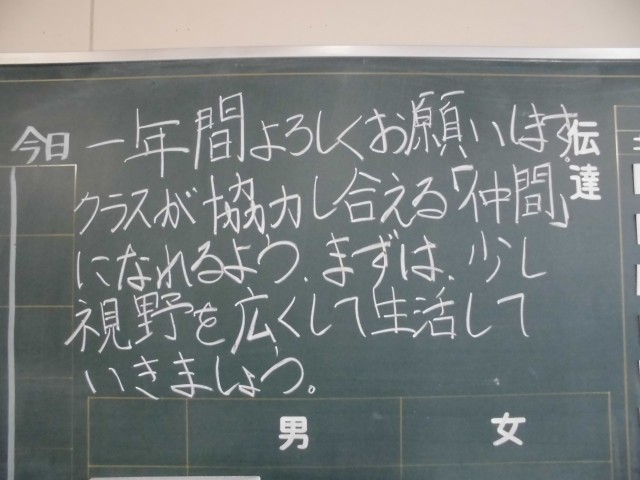 今日
一年間よろしくお願いします。
クラスが協力し合える「仲間」
になれるよう、まずは、少し
視野を広くして生活して
いきましょう。
伝達
男
女